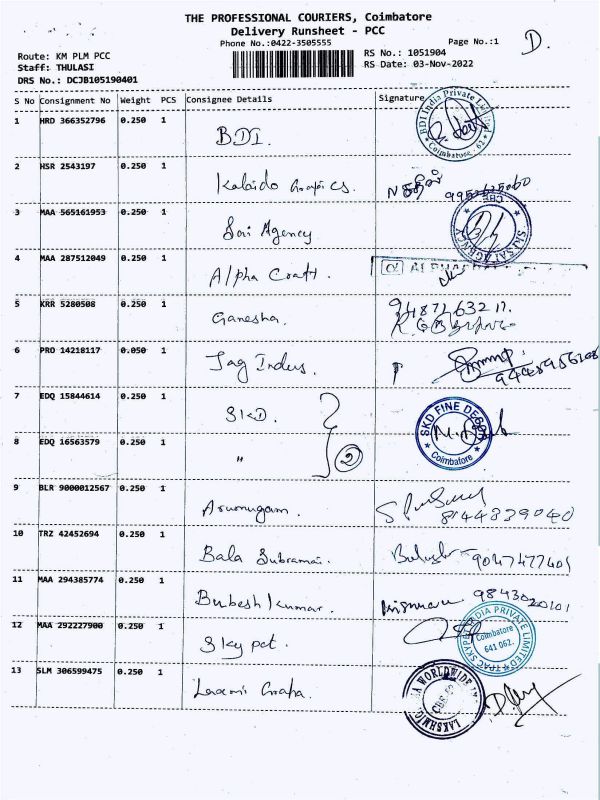 THE PROFESSIONAL COURIERS, Coimbatore
Delivery Runsheet - PCC
Phone No.:0422-3505555
Page No.:1
D.
Route: KM PLM PCC
RS No.: 1051904
Staff: THULASI
RS Date: 03-Nov-2022
DRS No.: DCJB105190401
S No Consignment No Weight PCS Consignee Details Signature
1 HRD 366352796 0.250 1 BDI.
BDI India Private Limited
Coimbatore - 62
2 HSR 2543197 0.250 1 Kalaido Graphics.
3 MAA 565161953 0.250 1 Sai Agency
SKI SAI AGENCY CBE
4 MAA 287512049 0.250 1 Alpha Craft.
5 KRR 5280508 0.250 1 Ganesha.
6 PRO 14218117 0.050 1 Jag Indus.
7 EDQ 15844614 0.250 1 SKD.
SKD FINE
Coimbatore
8 EDQ 16563579 0.250 1 " 2
9 BLR 9000012567 0.250 1 Arumugam.
8144839040
10 TRZ 42452694 0.250 1 Bala Subramai.
9047477401
11 MAA 294385774 0.250 1 Bubesh kumar.
9843020101
12 MAA 292227900 0.250 1 Sky pet.
INDIA PRIVATE LIMITED
Coimbatore
641 062.
13 SLM 306599475 0.250 1 Laxmi Grapa.
LAKSHMI WORLDWIDE